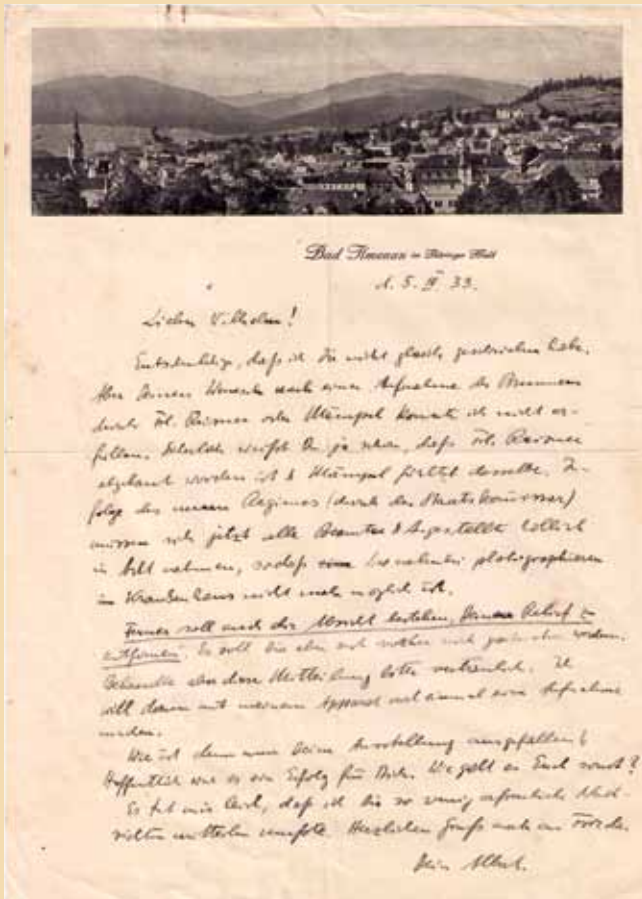 Bad Ilmenau im Thüringer Wald
d. 5. IV 33.
Lieber Wilhelm!
Entschuldige, daß ich Dir nicht gleich geschrieben habe.
Aber Deinen Wunsch nach einer Aufnahme des Brunnens
durch Frl. oder Stämpel konnte ich nicht er-
füllen. weißt Du ja schon, daß Frl.
abgebaut worden ist & Stämpel dasselbe. In-
folge des neuen Regimes (durch das Staatskommissar)
müssen sich jetzt alle Beamten & Angestellte höllisch
in Acht nehmen, sodaß photographieren
im Krankenhaus nicht mehr möglich ist.
Ferner soll auch die Absicht bestehen, Deinen Relief zu
entfernen. Es soll hin aber noch werden.
Behandle aber diese Mitteilung bitte vertraulich. Ich
will dann mit meinem Apparat mal eine Aufnahme
machen.
Wie ist denn nun Deine Ausstellung ausgefallen?
Hoffentlich war es ein Erfolg für Dich. Wie geht es Euch sonst?
Es tut mir leid, daß ich Dir so wenig erfreuliche Nach-
richten mitteilen mußte. Herzlichen Gruß auch an
Dein Albert.